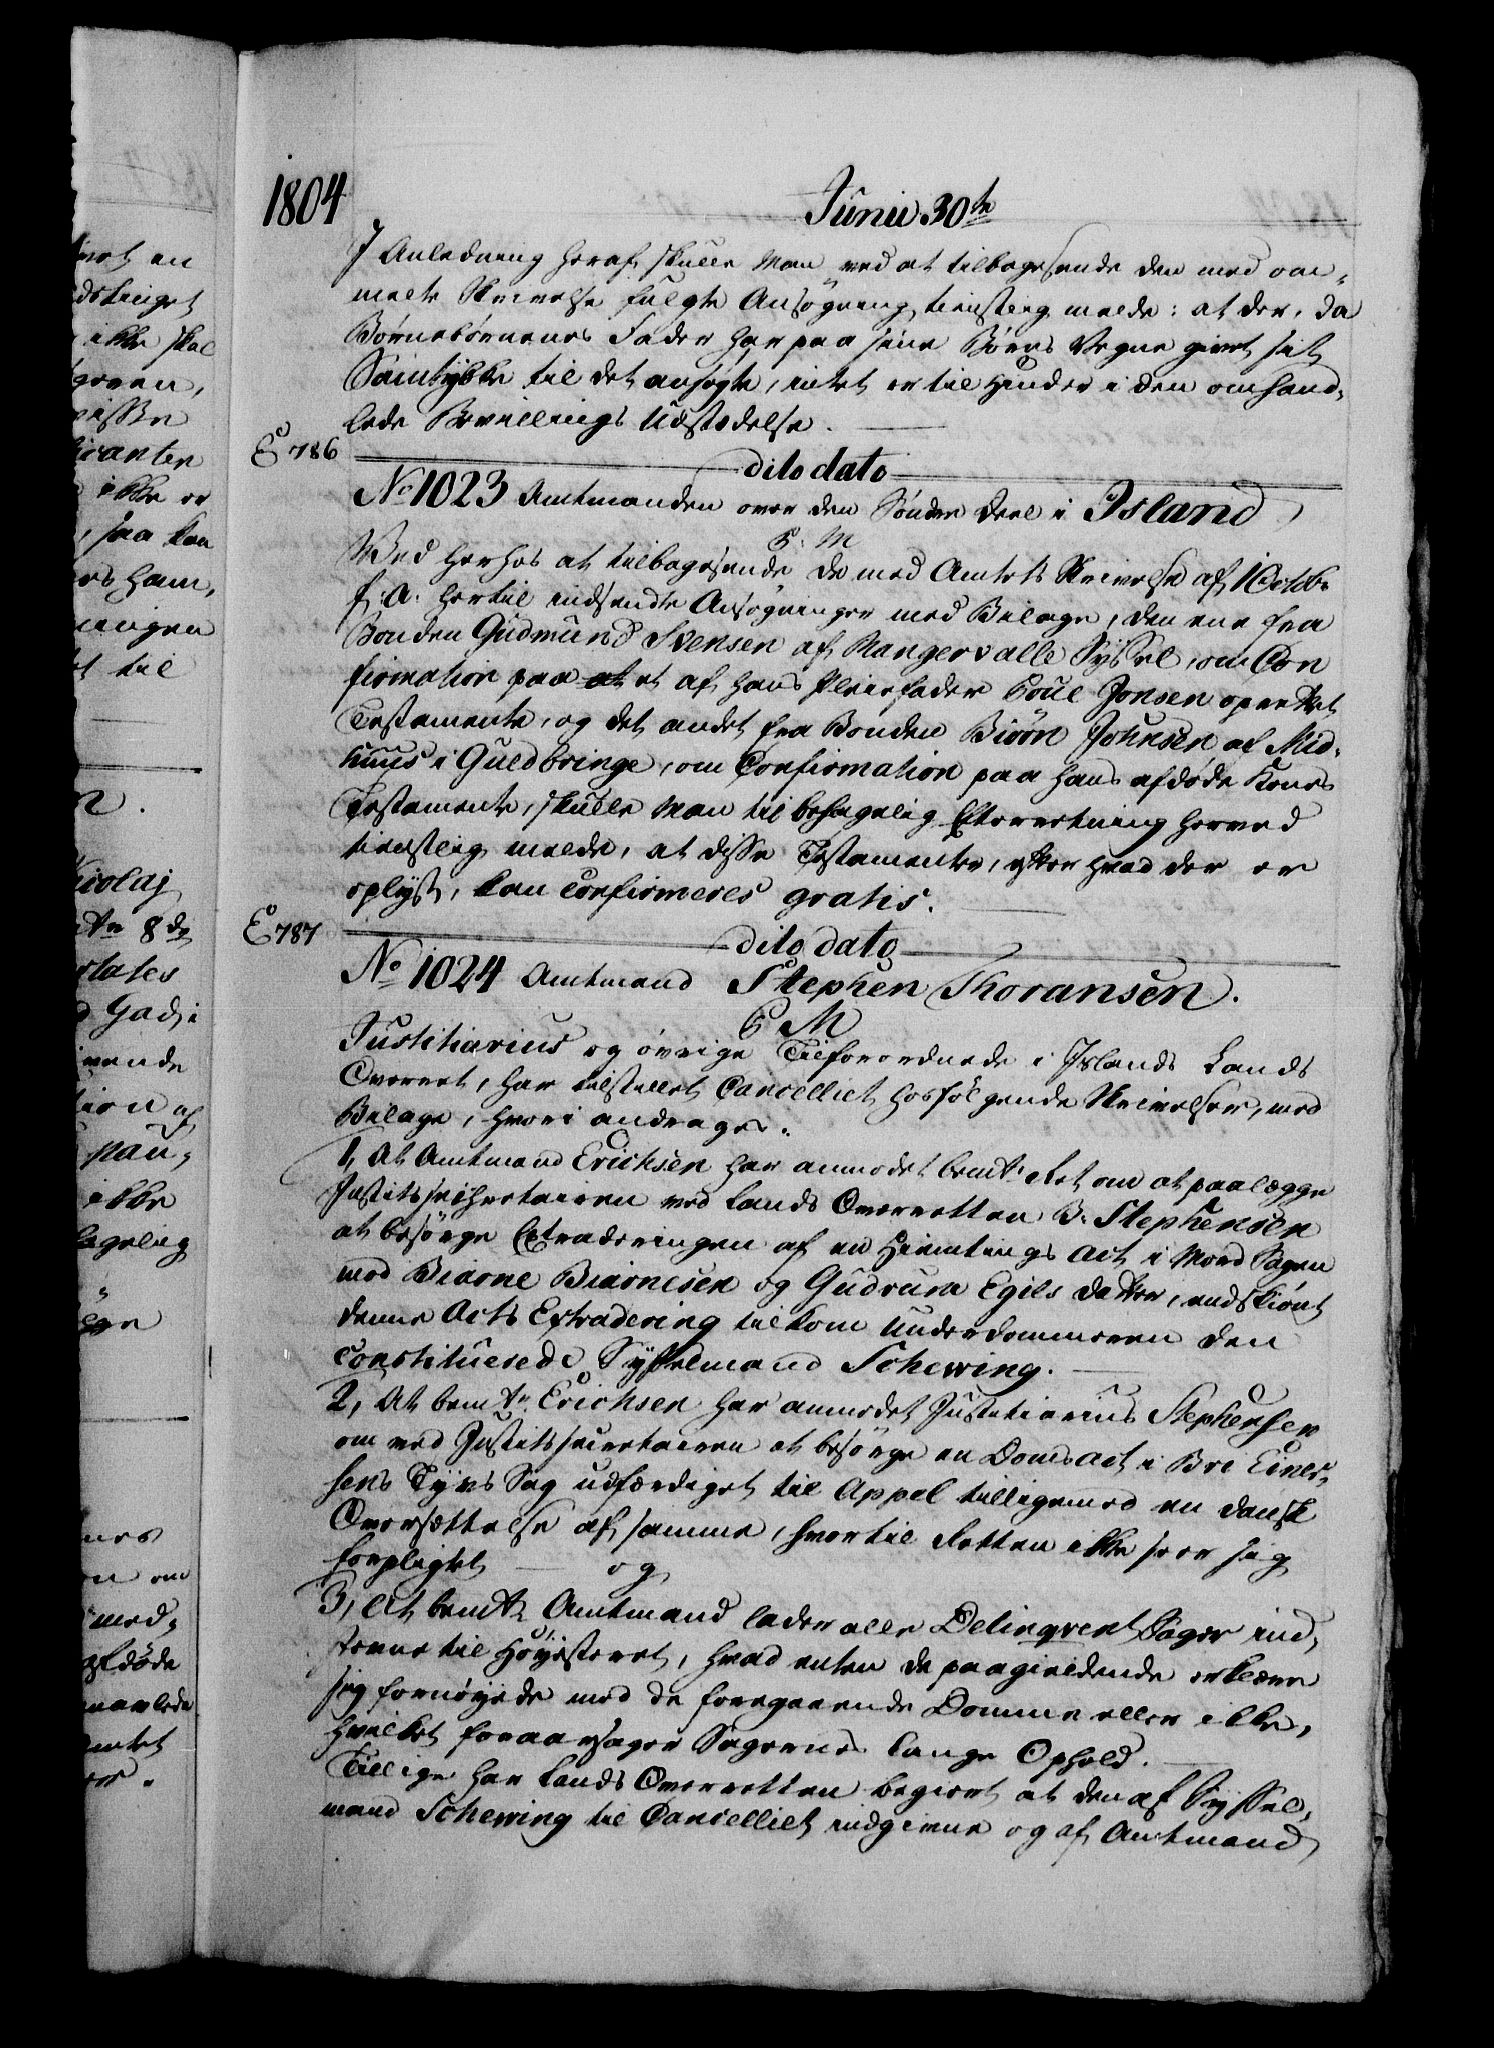 1804
Junii 30te
I Anledning heraf skulle Man ved at tilbagesende den med om¬
meldte Skrivelse fulgte Ansøgning tienstlig melde: at der, da
Børnebørnenes Fader har paa sine Børns Vegne givet sit
Samtykke til det ansøgte, intet er til Hinder i den omhand¬
lede Bevillings Udstædelse.
E 786
dito dato
No 1023 Amtmanden over den Sønder Deel i Island
P. M
Ved herhos at tilbagesende de med Amtets Skrivelse af 1 Octbr
f. A. hertil indsendte Ansøgninger med Bilage, den ene fra
Bonden Gudmund Svensen af Rangervalle Syssel, om Con
firmation paa et af hans Pleiefader Poul Jonsen oprettet
Testamente, og det andet fra Bonden Biørn Johnsen af Mid¬
huus i Guldbringe, om Confirmation paa hans afdøde Kones
Testamente, skulle Man til behagelig Efterretning herved
tienstlig melde, at disse Testamenter, efter hvad der er
oplyst, kan confirmeres gratis.
E 787
dito dato
No 1024 Amtmand Stephen Thoransen.
P M
Justitiarius og øvrige Tilforordnede i Islands Lands
Overret, har tilstillet Cancelliet hosfølgende Skrivelser, med
Bilage, hvori andrages:
1, At Amtmand Erichsen har anmodet bemte Ret om at paalægge
Justitssecretairen ved Lands Overretten B. Stephensen
at besørge Extraderingen af en Hiemtings Act i Mord Sagen
mod Biarne Biarnesen og Gudrum Egils datter, endskiønt
denne Acts Extradering tilkom Underdommeren den
constituerede Sysselmand Schewing.
2, At bemte Erichsen har anmodet Justitiarius Stephensen
om ved Justitssecretairen at besørge en Doms act i Bri Einer¬
sens Tyvs Sag udfærdiget til Appel tilligemed en dansk
Oversættelse af samme, hvortil Retten ikke seer sig
forpligtet og
3, At bemte Amtmand lader alle Delinqvent Sager ind¬
stevne til Høyesteret, hvad enten de paagieldende erklære
sig fornøyede med de foregaaende Domme eller ikke,
hvilket foraarsager Sagernes lange Ophold.
Tillige har Lands Overretten begiert at den af Syssel¬
mand Schewing til Cancelliet indgivne og af Amtmand